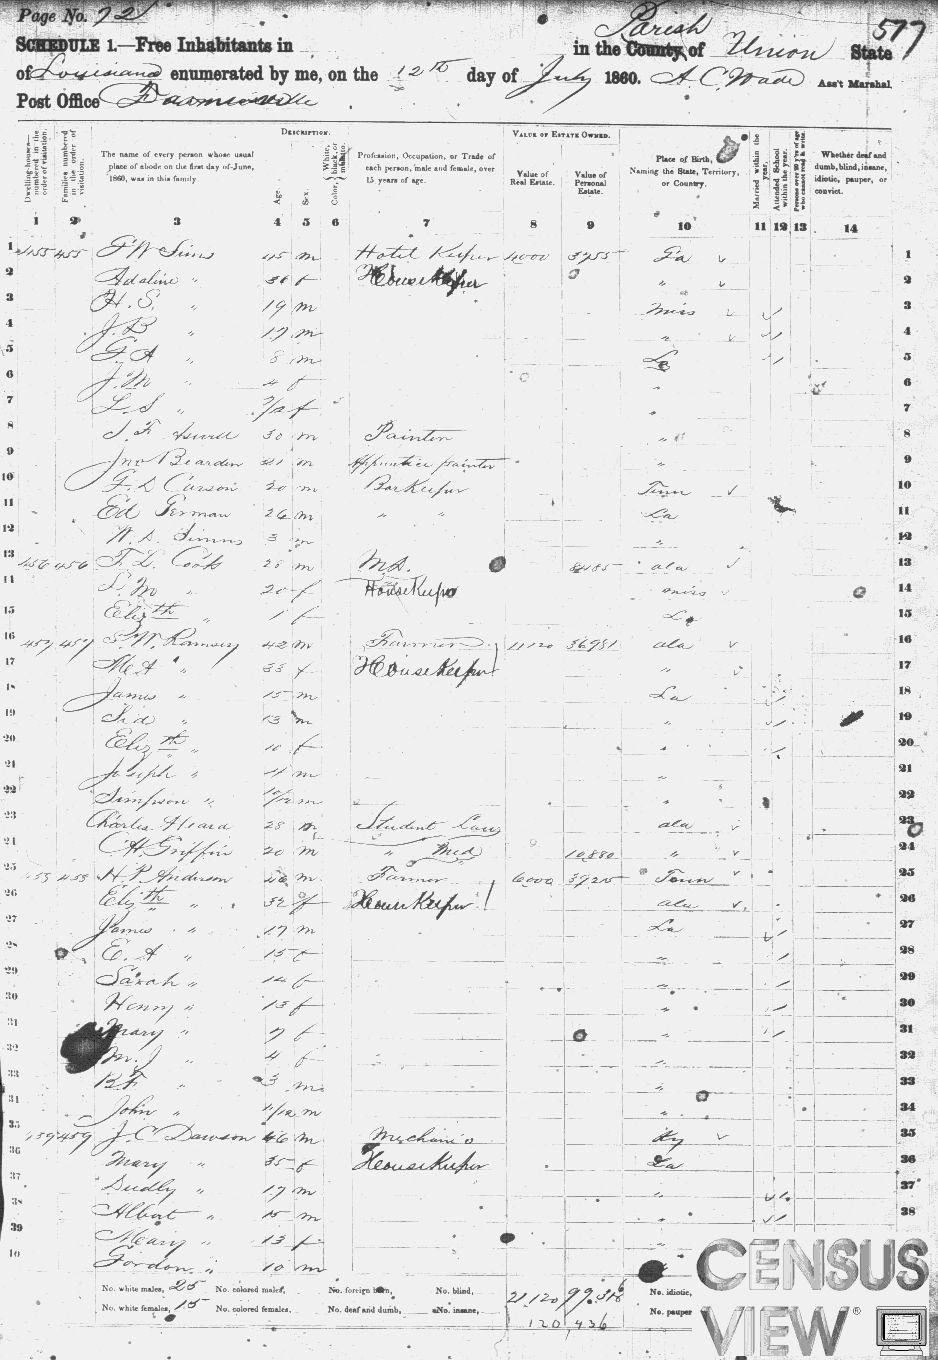 Page No. 72
Parish 577
SCHEDULE 1.—Free Inhabitants in in the County of Union State
of Louisiana enumerated by me, on the 12th day of July 1860. A. C. Wade Ass't Marshal.
Post Office
DESCRIPTION. VALUE OF ESTATE OWNED.
Dwelling-houses—numbered in the order of visitation. Families numbered in the order of visitation. The name of every person whose usual place of abode on the first day of June, 1860, was in this family. Age. Sex. Color, White, black, or mulatto. Profession, Occupation, or Trade of each person, male and female, over 15 years of age. Value of Real Estate. Value of Personal Estate. Place of Birth, Naming the State, Territory, or Country. Married within the year. Attended School within the year. Persons over 20 y'rs of age who cannot read & write. Whether deaf and dumb, blind, insane, idiotic, pauper, or convict.
1 2 3 4 5 6 7 8 9 10 11 12 13 14
1 455 455 F W Sims 45 m Hotel Keeper 4000 3755 Ga 1
2 Adaline 36 f Housekeeper " 2
3 H. S. " 19 m Miss 3
4 J. B " 17 m " 4
5 G A " 8 m La 5
6 J. M " 4 f " 6
7 L. S " f " 7
8 30 m Painter " 8
9 Jno Bearden 21 m Apprentice painter " 9
10 F. D Carson 20 m BarKeeper Tenn 10
11 Ed German 26 m " " La 11
12 W. D. Simms 3 m " 12
13 456 456 T. L. Cook 28 m M.D. 8485 ala 13
14 S. M " 20 f HouseKeeper miss 14
15 Elizth " 1 f La 15
16 457 457 S. W. Ramsey 42 m Farmer 11120 36981 ala 16
17 M. A " 33 f HouseKeeper " 17
18 James " 15 m La 18
19 Sid " 13 m " 19
20 Elizth " 10 f " 20
21 Joseph " 4 m " 21
22 Simpson " 10/12 m " 22
23 Charles Heard 28 m Student Law ala 23
24 C H Griffin 20 m " Med 10880 " 24
25 458 458 H. P. Anderson 46 m Farmer 6000 39215 Tenn 25
26 Elizth " 32 f HouseKeeper ala 26
27 James " 17 m La 27
28 E. A " 15 f " 28
29 Sarah " 14 f " 29
30 Henry " 13 f " 30
31 Mary " 7 f " 31
32 M. J " 4 f " 32
33 B F " 3 m " 33
34 John " m " 34
35 459 459 J. C. Dawson 46 m Mechanic Ky 35
36 Mary " 35 f HouseKeeper La 36
37 Dudly " 17 m " 37
38 Albert " 15 m " 38
39 Meary " 13 f
40 Gordon " 10 m
No. white males, 25 No. colored males, No. foreign born, No. blind, 21,120 99,316 No. idiotic,
No. white females, 15 No. colored females, No. deaf and dumb, No. insane, No. pauper
120,436
CENSUS
VIEW ®